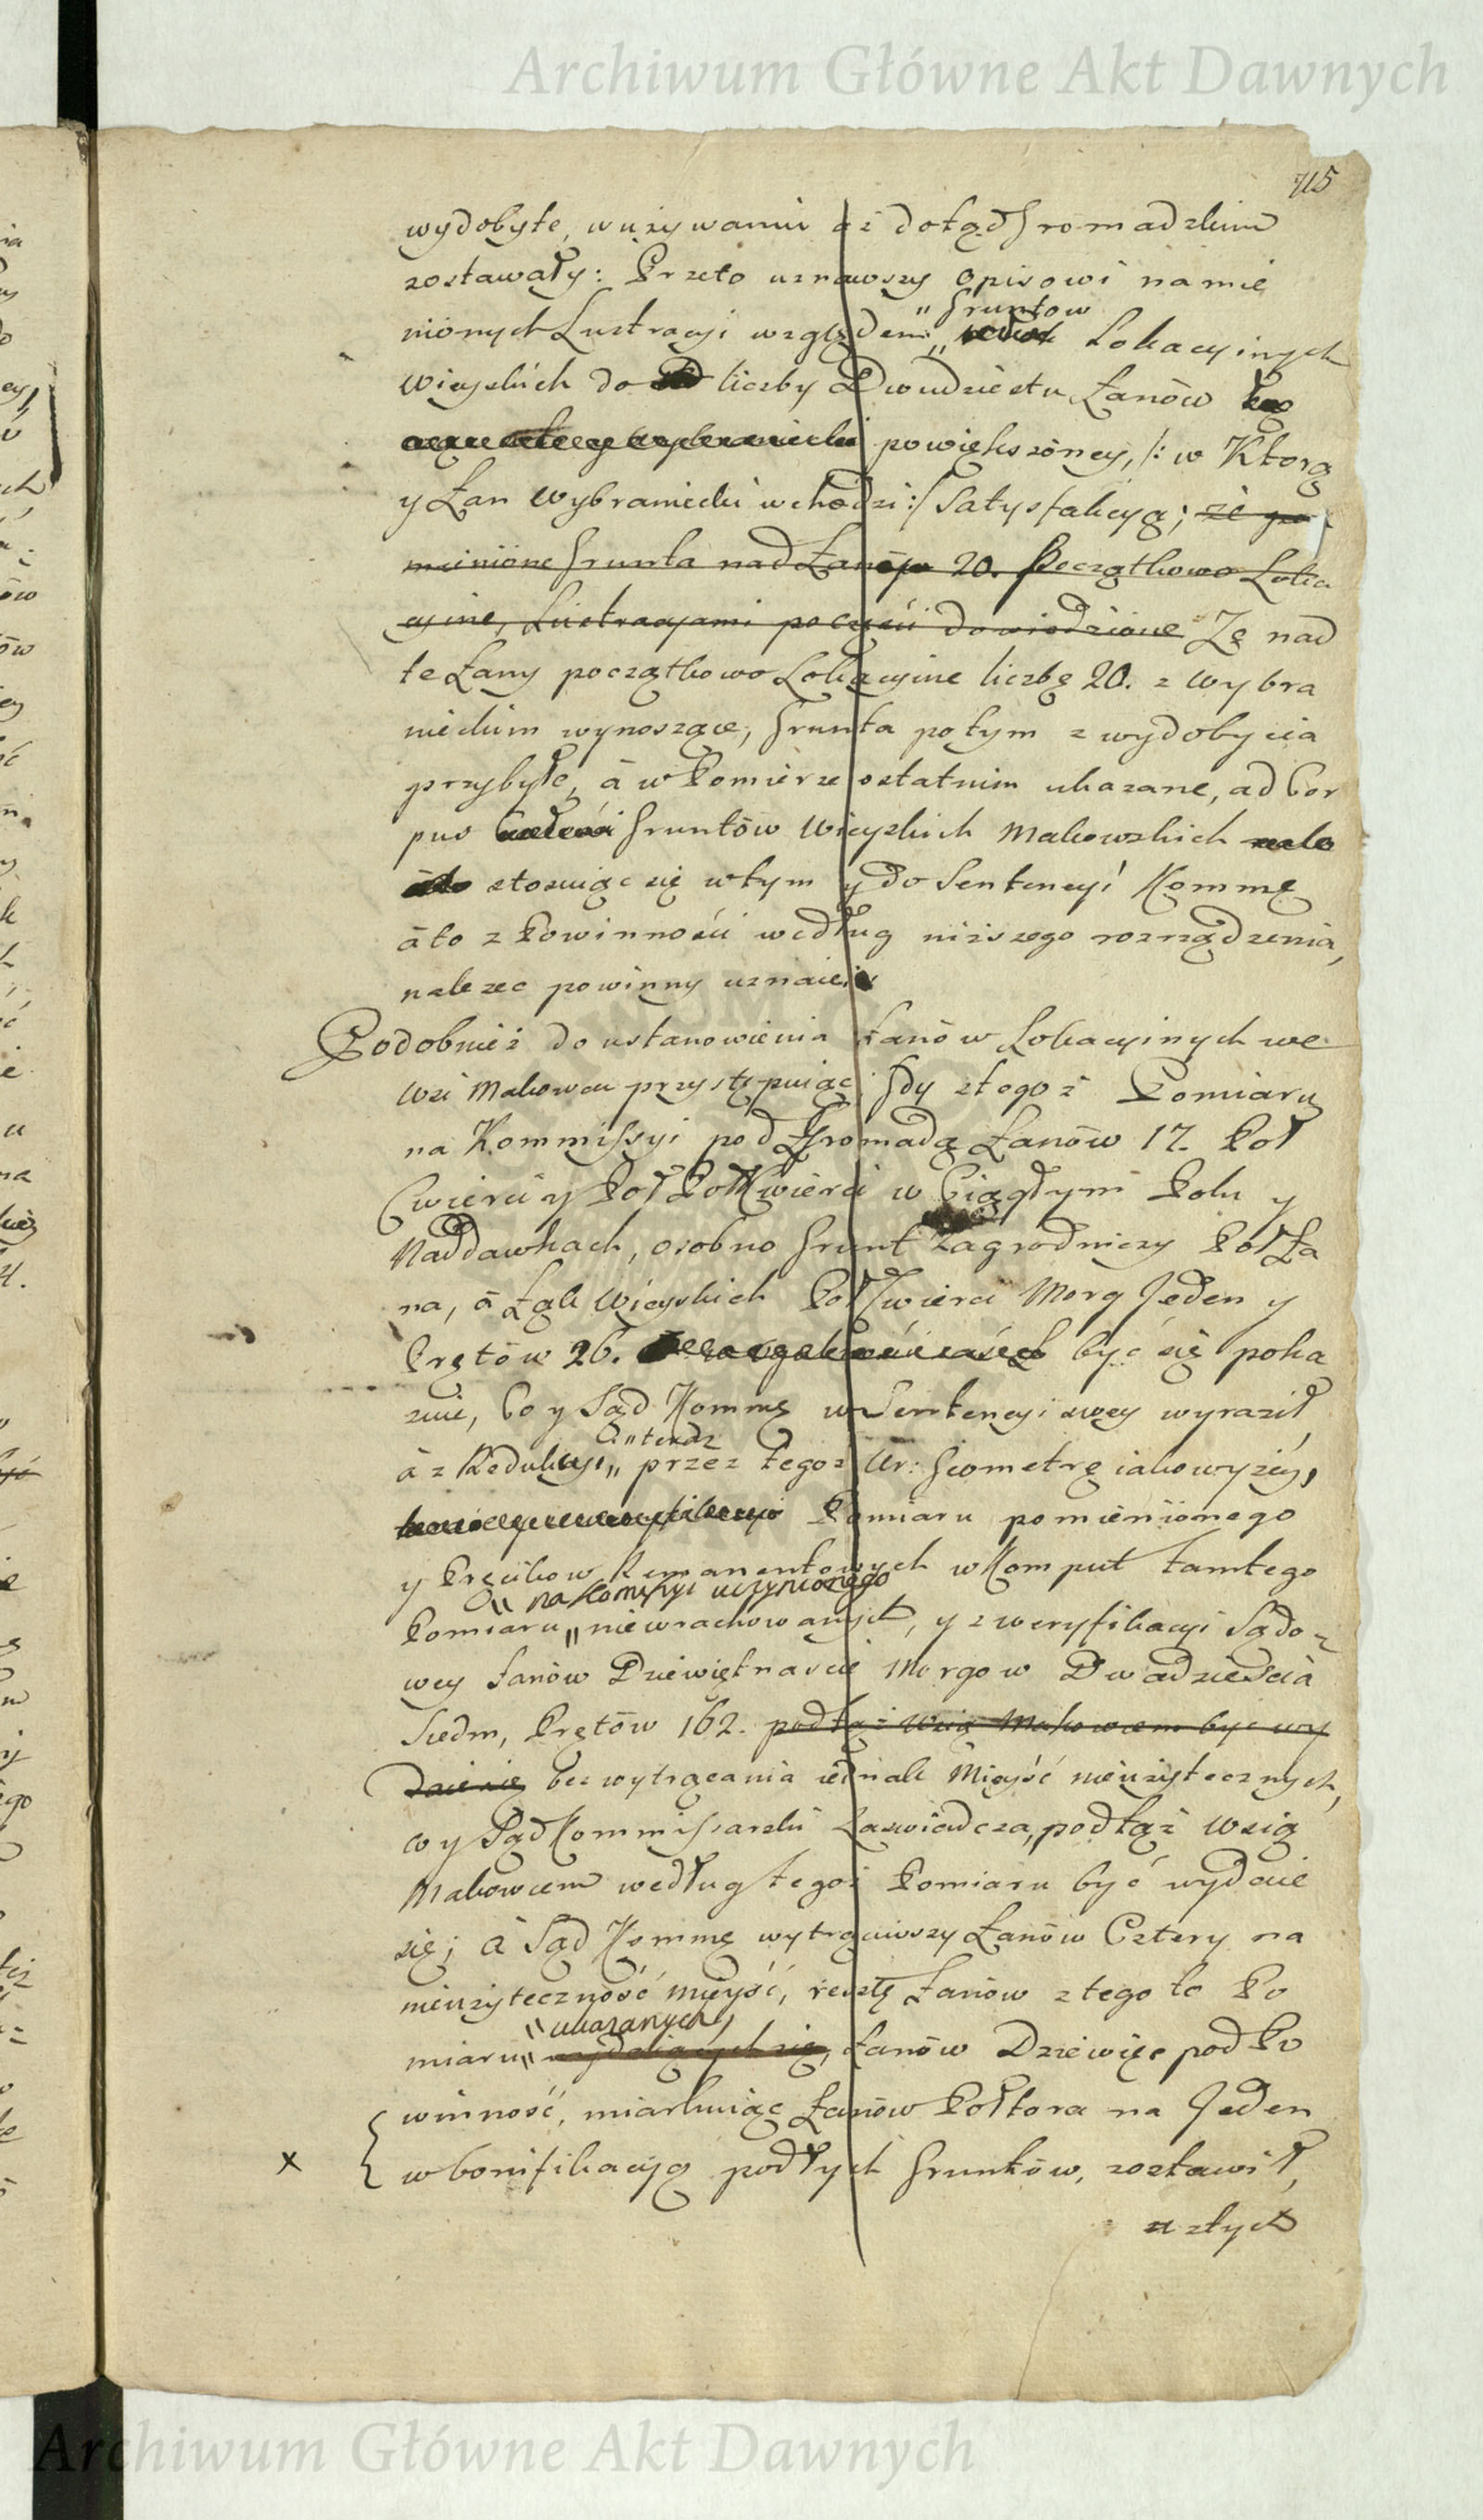 Archiwum Główne Akt Dawnych
715
wydobyte, w używaniu aż dotąd Gromadzkim
zostawały: Przeto uznawszy opisowi namie
" Gruntow
nionych Lustracyi względem " Lokacyinych
Wieyskich do liczby Dwudziestu Łanów
powiększoney, /: w Ktorą
y Łan Wybraniecki wchodzi :/ Satysfakcyą; że po
mienione Grunta nad Łanów 20. Początkowo Loka
cyine, Lustracyami poczęści dowiedzione Zę nad
te Łany początkowo Lokacyine liczbę 20. z Wybra
nieckim wynoszące, Grunta potym z wydobycia
przybyłe, á w Pomierze ostatnim ukazane, ad Cor
pus Gruntów Wieyskich Makowskich
stosuiąc się w tym y do Sentencyi Kommę
á to z Powinności według niższego rozrządzenia,
nalezec powinny uznaie.
Podobnież do ustanowienia Łanów Lokacyinych we
Wsi Makowcu przystępuiąc, Gdy z tegoż Pomiaru
na Kommissyi pod Gromadą Łanów 17. Poł
Cwierci y Poł Poł Cwierci w Ciągłym Polu y
Naddawkach, osobno Grunt Zagrodniczy Poł Ła
na, á Łąk Wieyskich Poł Cwierci Morg Jeden y
Prętów 26. być się poka
zuie, Co y Sąd Kommę w Sentencyi swey wyraził,
á " teraz
á z Redukcyi " przez tegoż Ur: Geometrę iako wyżey,
Pomiaru pomienionego
y Pręcikow Remanentowych w Komput tamtego
" na Komissyi uczynionego
Pomiaru " niewrachowanych, y z weryfikacyi Sądo-
wey Łanów Dziewiętnascie Morgow Dwadzieścia
Siedm, Prętów 162. podtąż Wsią Makowcem być wy
daie się bez wytrącania iednak Mieyść nieużytecznych,
co y Sąd Kommissarski zaswiadcza, pod tąż Wsią
Makowcem według tegoż Pomiaru być wydaie
się; á Sąd Kommę wytrąciwszy Łanów Cztery na
nieużyteczność mieyść, resztę Łanów z tego to Po
" ukazanych,
miaru " wydaiących się, Łanów Dziewięc pod Po
winność, miarkuiąc Łanów Połtora na Jeden
x w bonifikacyą podłych Gruntów, zostawił,
z tych
Archiwum Główne Akt Dawnych